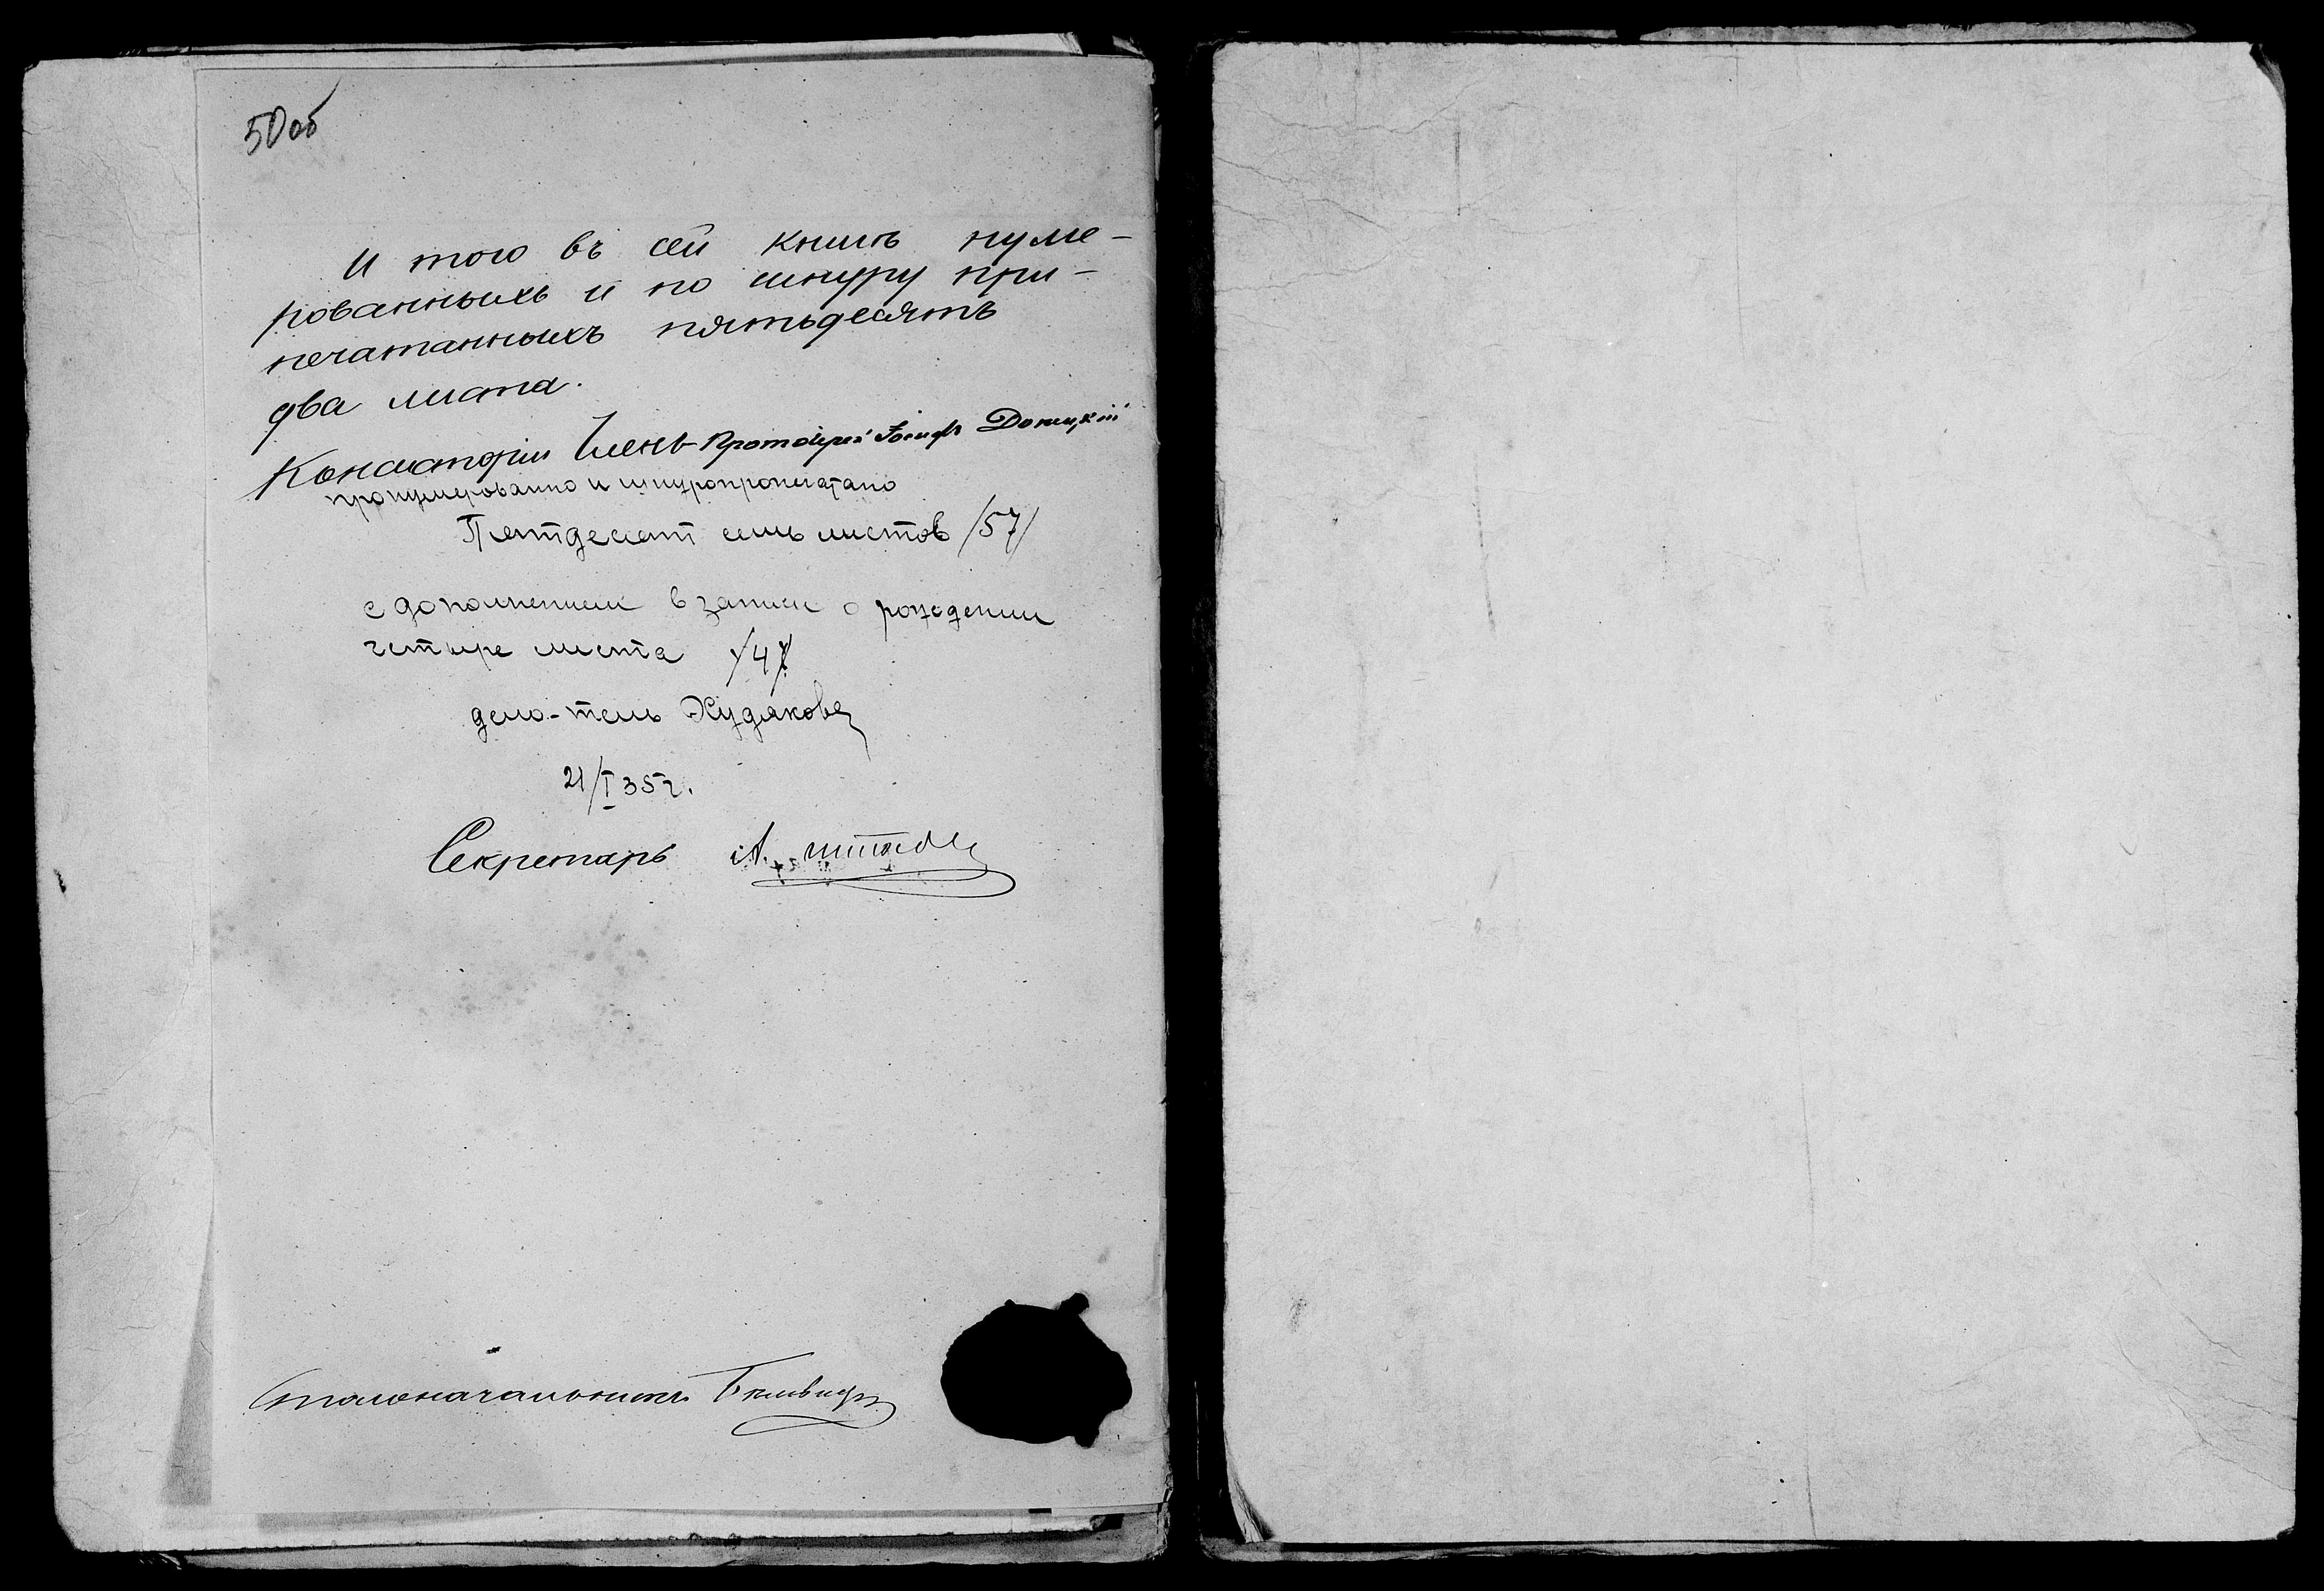 50об
И того въ сей книгѣ нуме-
рованныхъ и по шнуру при-
печатанныхъ пятьдесятъ
два листа.
Консисторіи Членъ Протоіерей Іосифъ Донецкій
пронумерованно и шнуропропечатано
Пятдесят семь листов /57/
с дополнением в записи о рождении
четыре листа /4/
дело-тель Худякова
21/I 35г.
Секретарь А.
Столоначальникъ